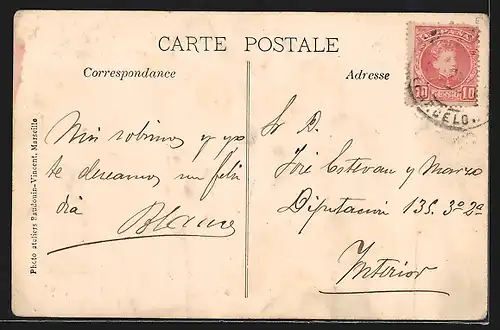 CARTE POSTALE
Correspondance
Adresse
ESPAÑA
10 10
CELO
Mis sobrinos y yo
te deseamos un feliz
dia
Blanca
Sr D.
José Estevan y Marzo
Diputación 135. 3º 2ª
Interior
Photo ateliers Baudouin-Vincent, Marseille